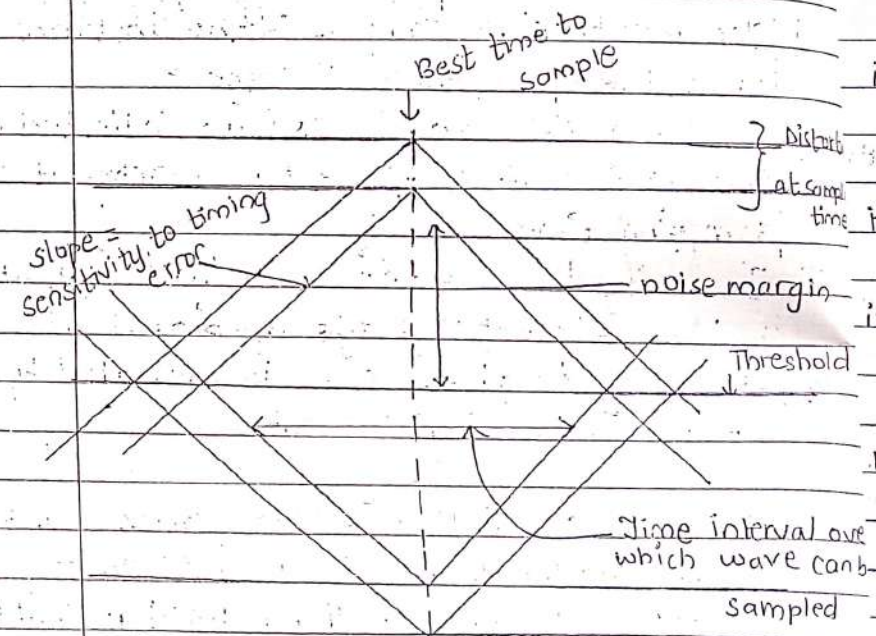 Best time to
sample
Distort
at sampl
time
slope =
sensitivity to timing
error
noise margin
Threshold
Time interval ove
which wave can b
Sampled